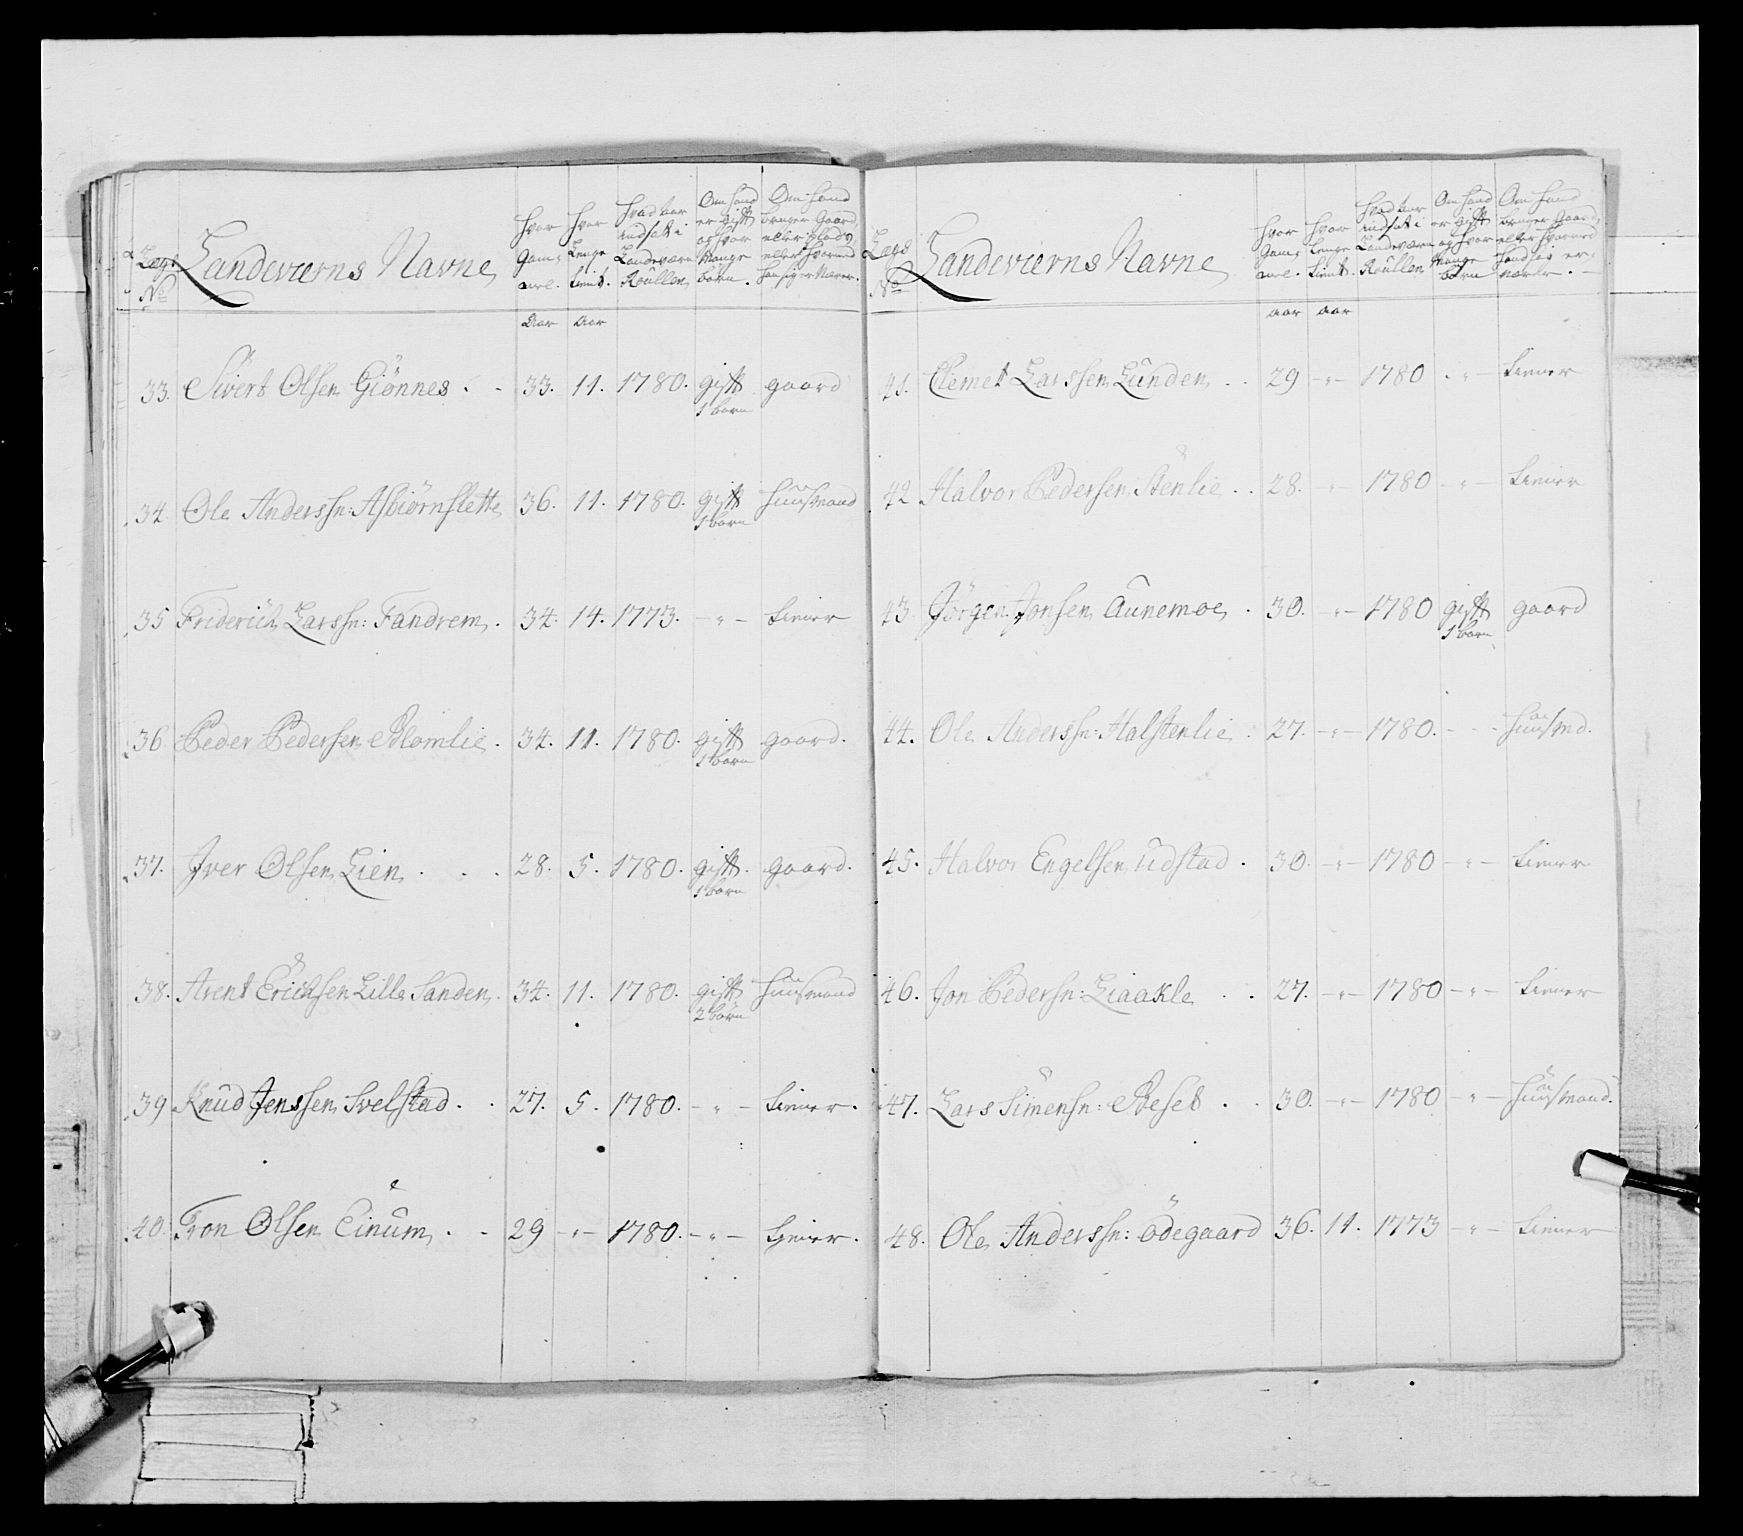 Lægs No
Landeværns Navne
hvor Gam¿ mel.
hvor Lenge tient.
hvad aar indsat i Landeværn Roullen
Om hand er gift og hvor Mange børn.
Om hand bruger Gaard, eller Plads, eller hvormed han sig er Nærer.
Aar Aar
33. Sivert Olsen Giönnes . . 33. 11. 1780. gift 1 barn gaard
34. Ole Anderssn: Asbiörnslette 36. 11. 1780. gift 1 barn huusmand
35 Friderich Larssn: Fandrem . 34. 14. 1773. - " - tiener
36 Peder Pedersen Blomlie . 34. 11. 1780. gift 1 barn gaard.
37. Iver Olsen Lien . . . 28. 5. 1780. gift. 1 barn gaard.
38. Arent Erichsen Lille Sanden . 34. 11. 1780. gift 2 børn huusmand
39 Knud Jenssen Svelstad . . 27. 5. 1780. - " - tiener.
40. Tron Olsen Einum . . 29 - " - 1780. - " - tiener.
Lægs No
Landeværns Navne
hvor Gam¿ mel.
hvor Lenge tient.
hvad aar indsat i Landeværn Roullen
Om hand er gift og hvor Mange børn
Om hand bruger Gaard, eller hvormed hand sig er¿ nærer. -
aar aar
41. Clemet Larssen Lunden . . 29 - " - 1780 . " - tiener
42 Halvor Pedersen Stenlie . . 28. - " - 1780 - " - tiener
43 Jörgen Jonsen Aunemoe . 30. - " - 1780 gift 1 barn gaard
44. Ole Anderssn: Halstenlie . 27. - " - 1780. - - - huusmd.
45. Halvor Engelsen Udstad . 30. - " - 1780 - " - tiener
46. Jon Pedersn: Liaakle . . 27. - " - 1780 - " - tiener
47. Lars Simensn: Reset . . 30. - " - 1780 - " - huusmand.
48. Ole Anderssn: Ödegaard 36. 11. 1773 - " - tiener